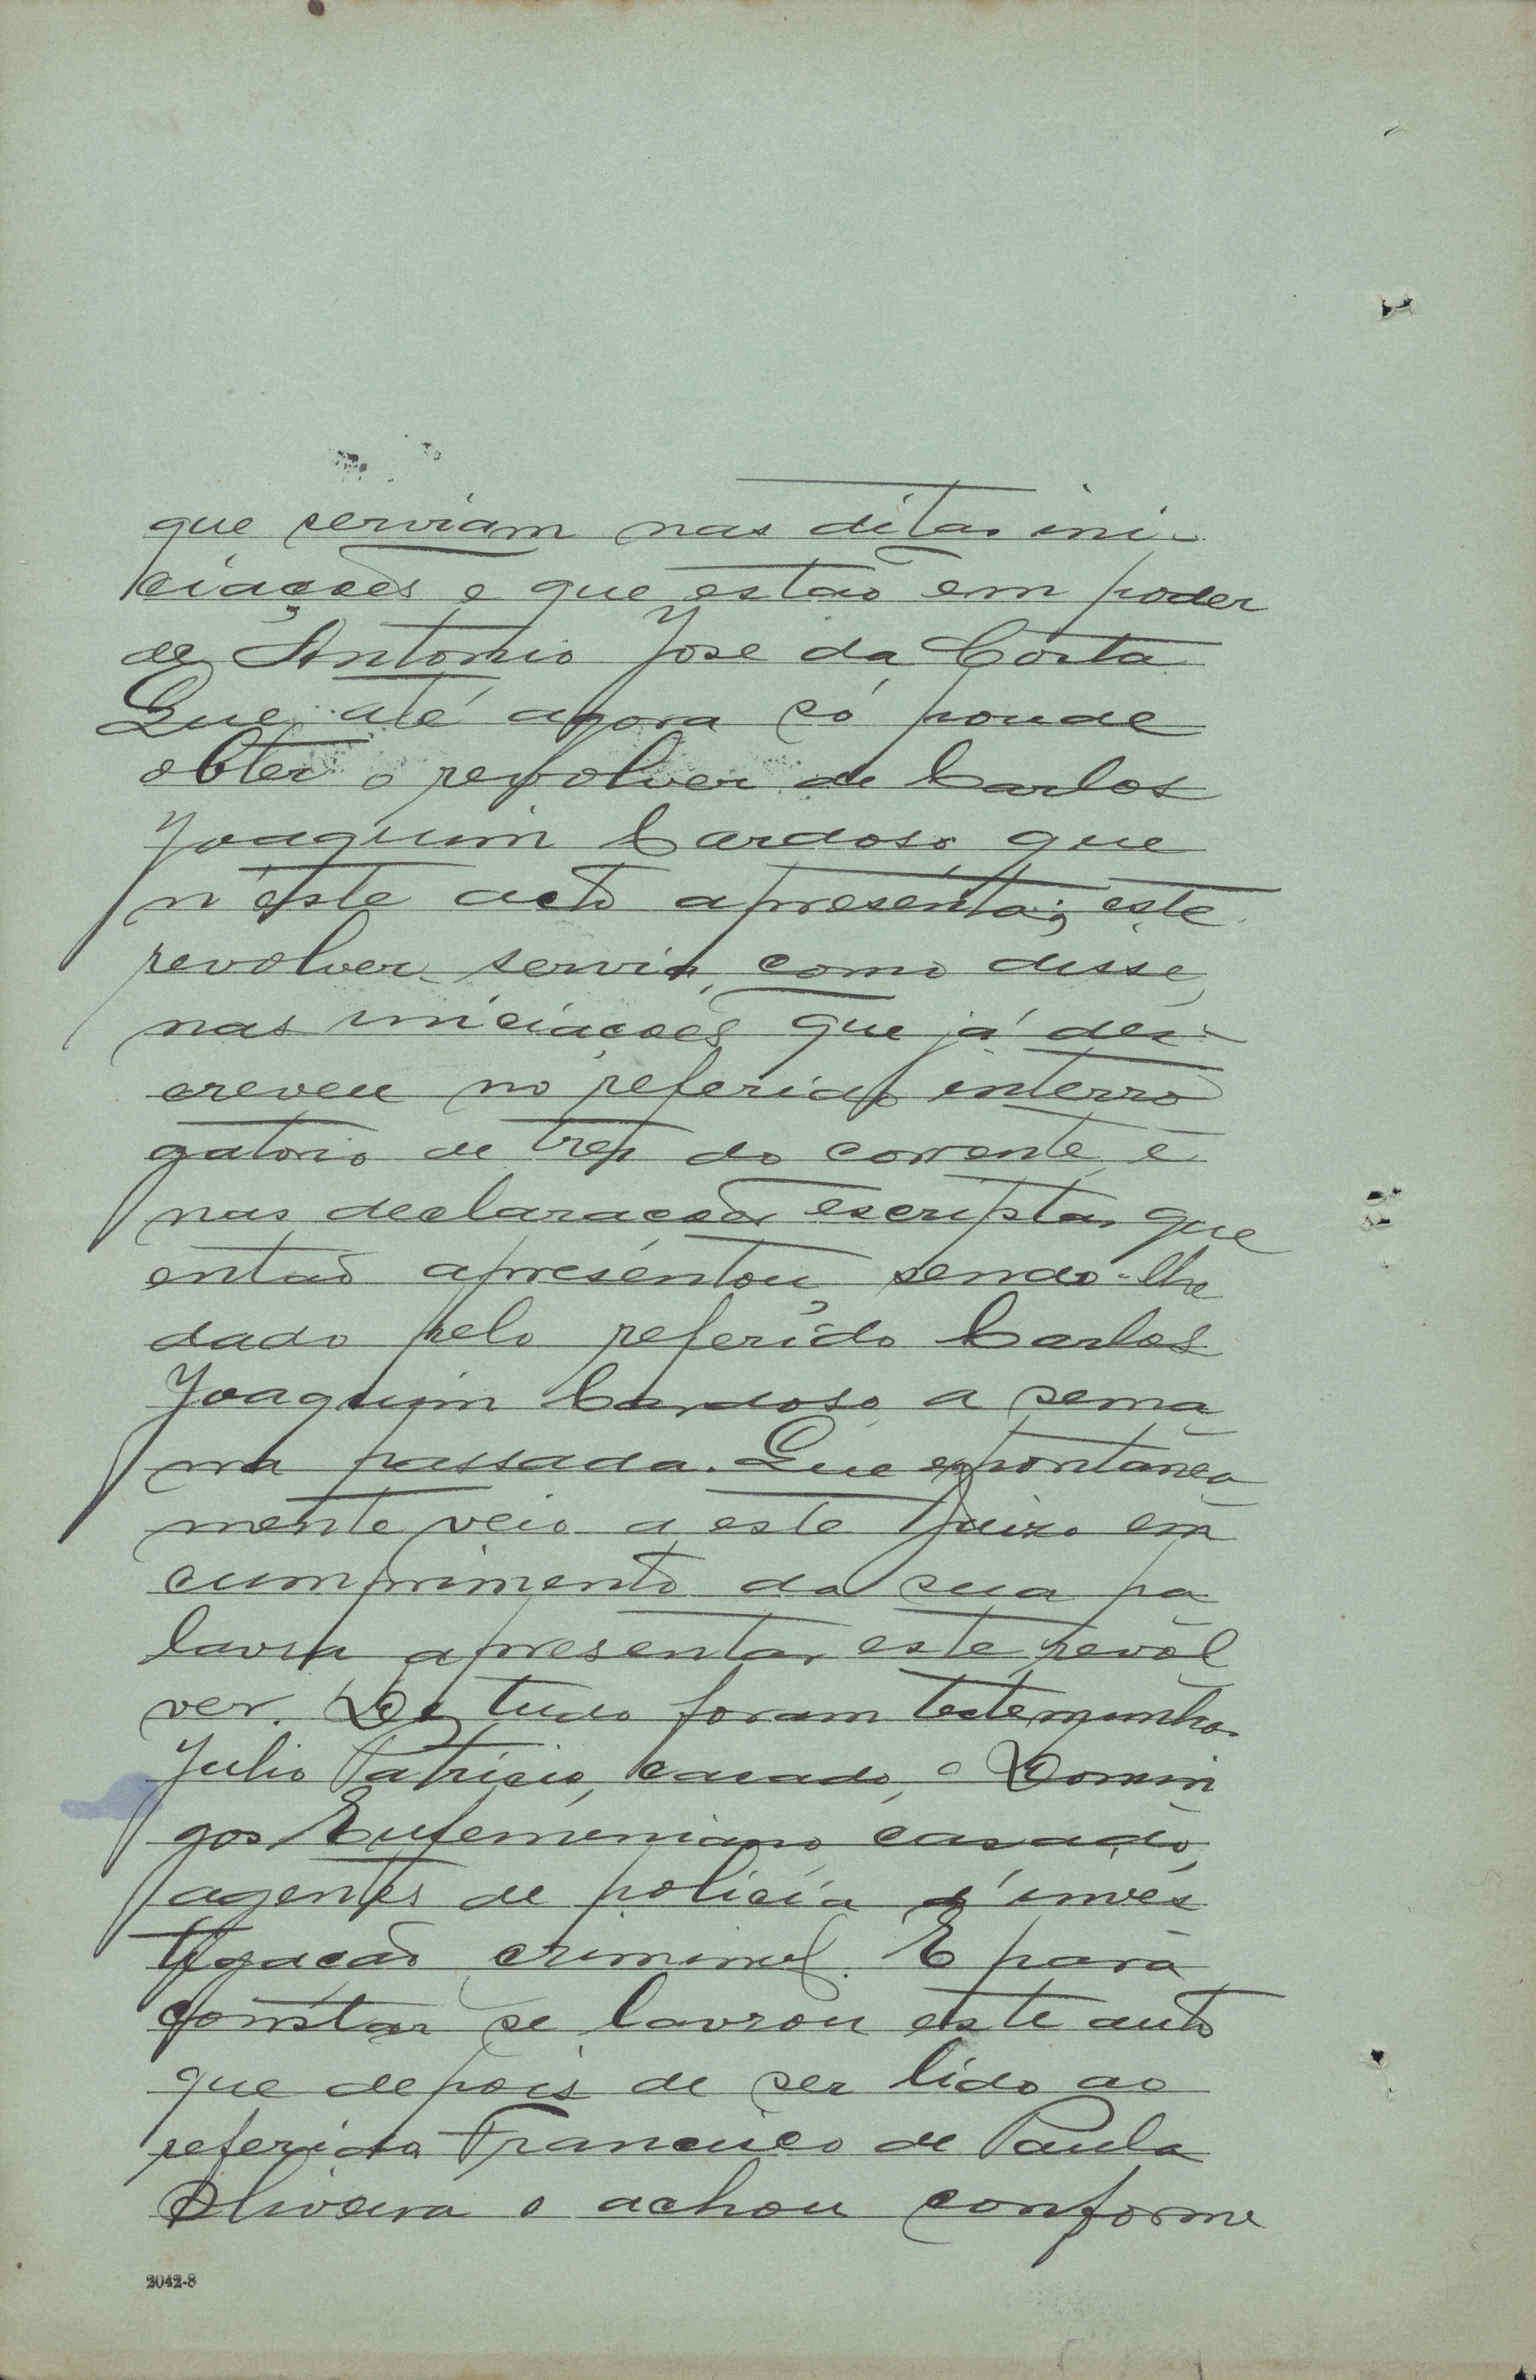 que serviam nas ditas ini-
ciações e que estão em poder
de Antonio José da Costa
Que até agora só poude
obter o revolver de Carlos
Joaquim Cardoso que
n'este acto apresenta; este
revolver servia, como disse,
nas iniciações que já des-
creveu no referido interro
gatorio de tres do corrente e
nas declarações escriptas que
então apresentou, sendo-lhe
dado pelo referido Carlos
Joaquim Cardoso a sema
na passada. Que espontanea
mente veio a este Juizo em
cumprimento da sua pa
lavra apresentar este revol
ver. De tudo foram testemunhas
Julio Patricio, casado, e Domin
gos Eufemeniano, casado,
agentes de policia d'inves
tigação criminal. E para
constar se lavrou este auto
que depois de ser lido ao
referido Francisco de Paula
Oliveira o achou conforme
2042-8